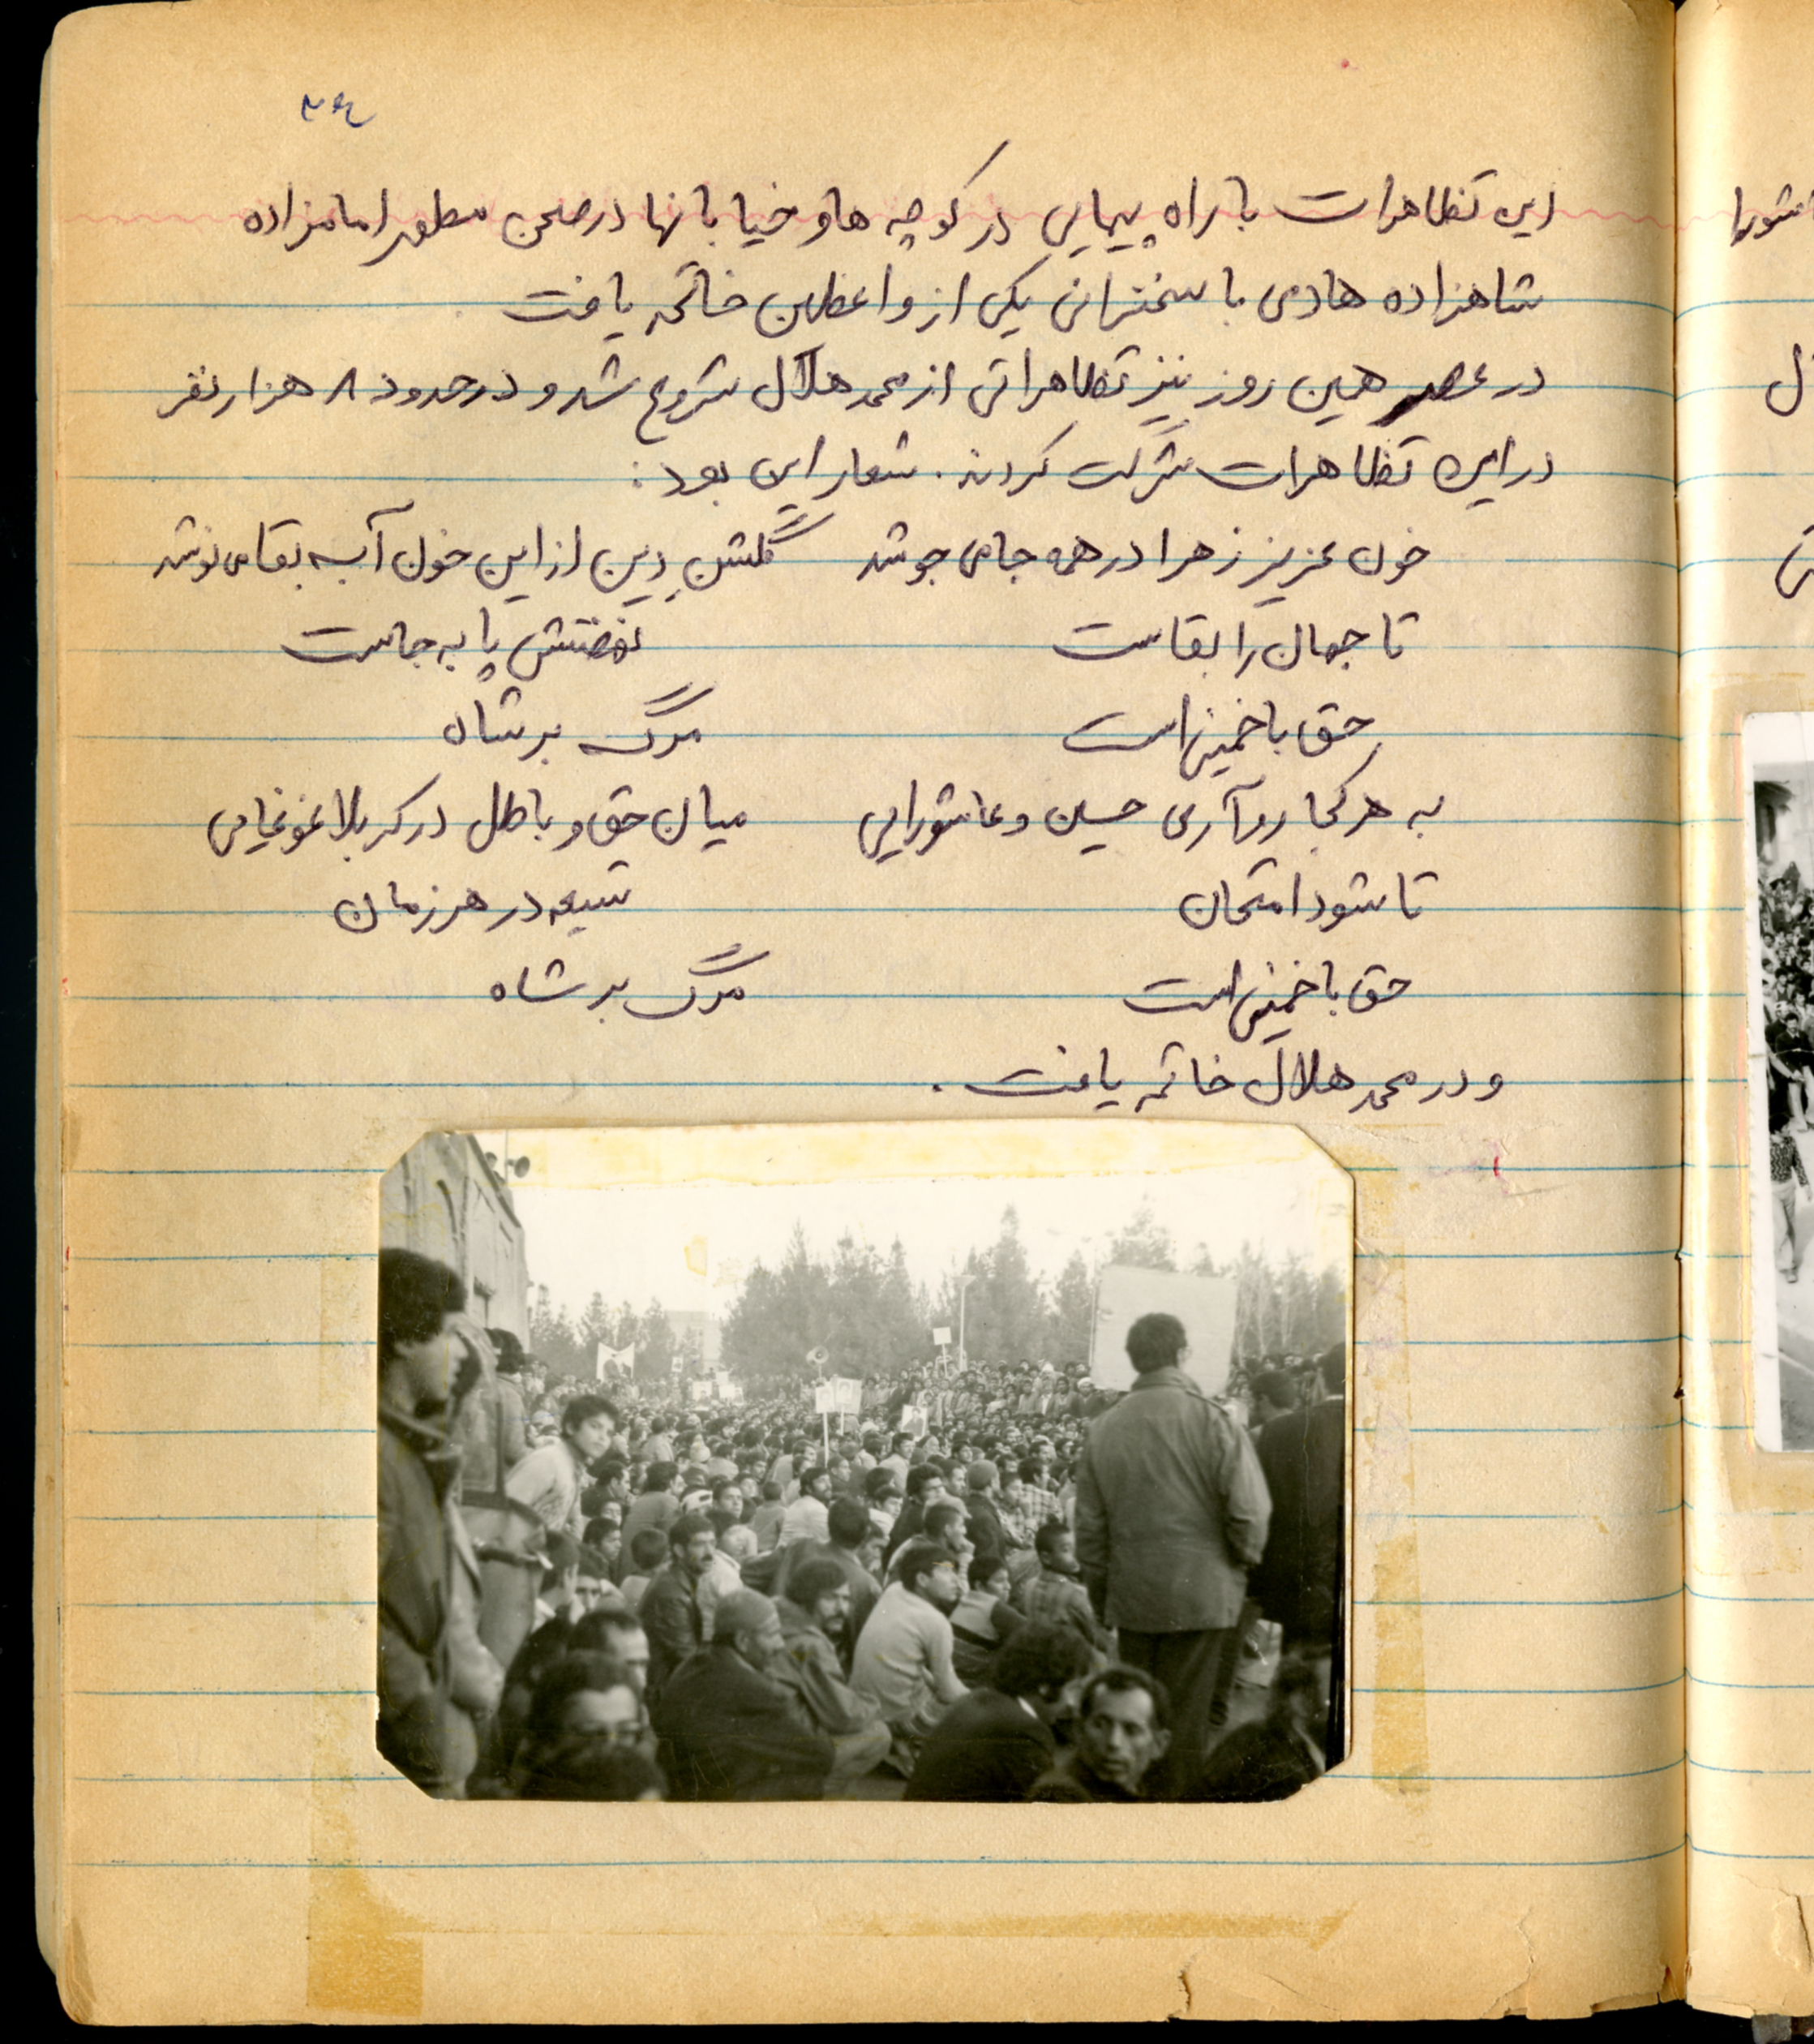 این تظاهرات با راه پیمایی در کوچه ها و خیابانها در صحن مطهر امامزاده
شاهزاده هادی با سخنرانی یکی از واعظین خاتمه یافت
در عصر همین روز نیز تظاهراتی از محمد هلال شروع شد و در حدود ۸ هزار نفر
در این تظاهرات شرکت کردند. شعار این بود:
خون عزیز زهرا در همه جا می جوشد گلشن دین از این خون آب بقا می نوشد
تا جهان را بقاست نهضتش پا به جاست
حق با خمینی است مرگ بر شاه
به هر کجا رو آری حسین و عاشورایی میان حق و باطل در کربلا غوغایی
تا شود امتحان شیعه در هر زمان
حق با خمینی است مرگ بر شاه
و در محمد هلال خاتمه یافت.